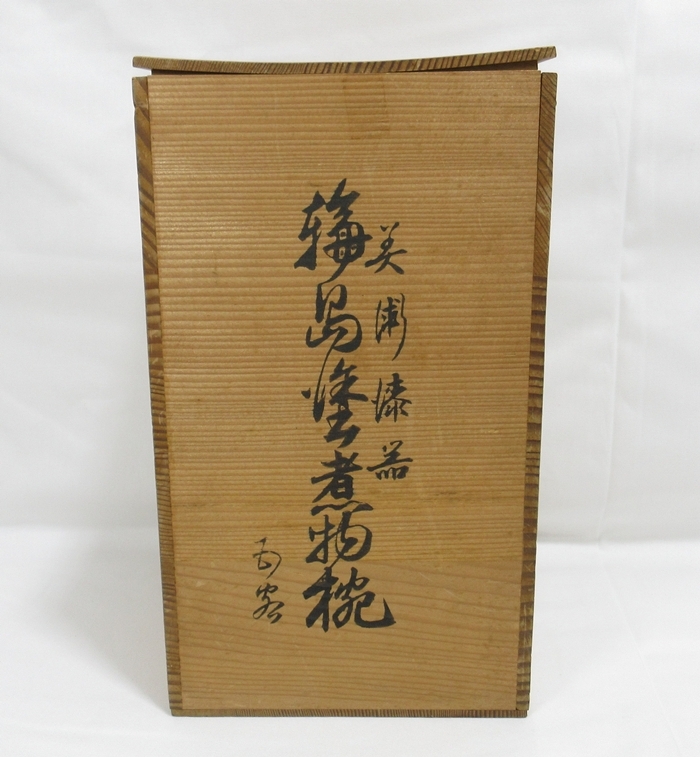 美術漆器
輪島塗煮物椀
五客